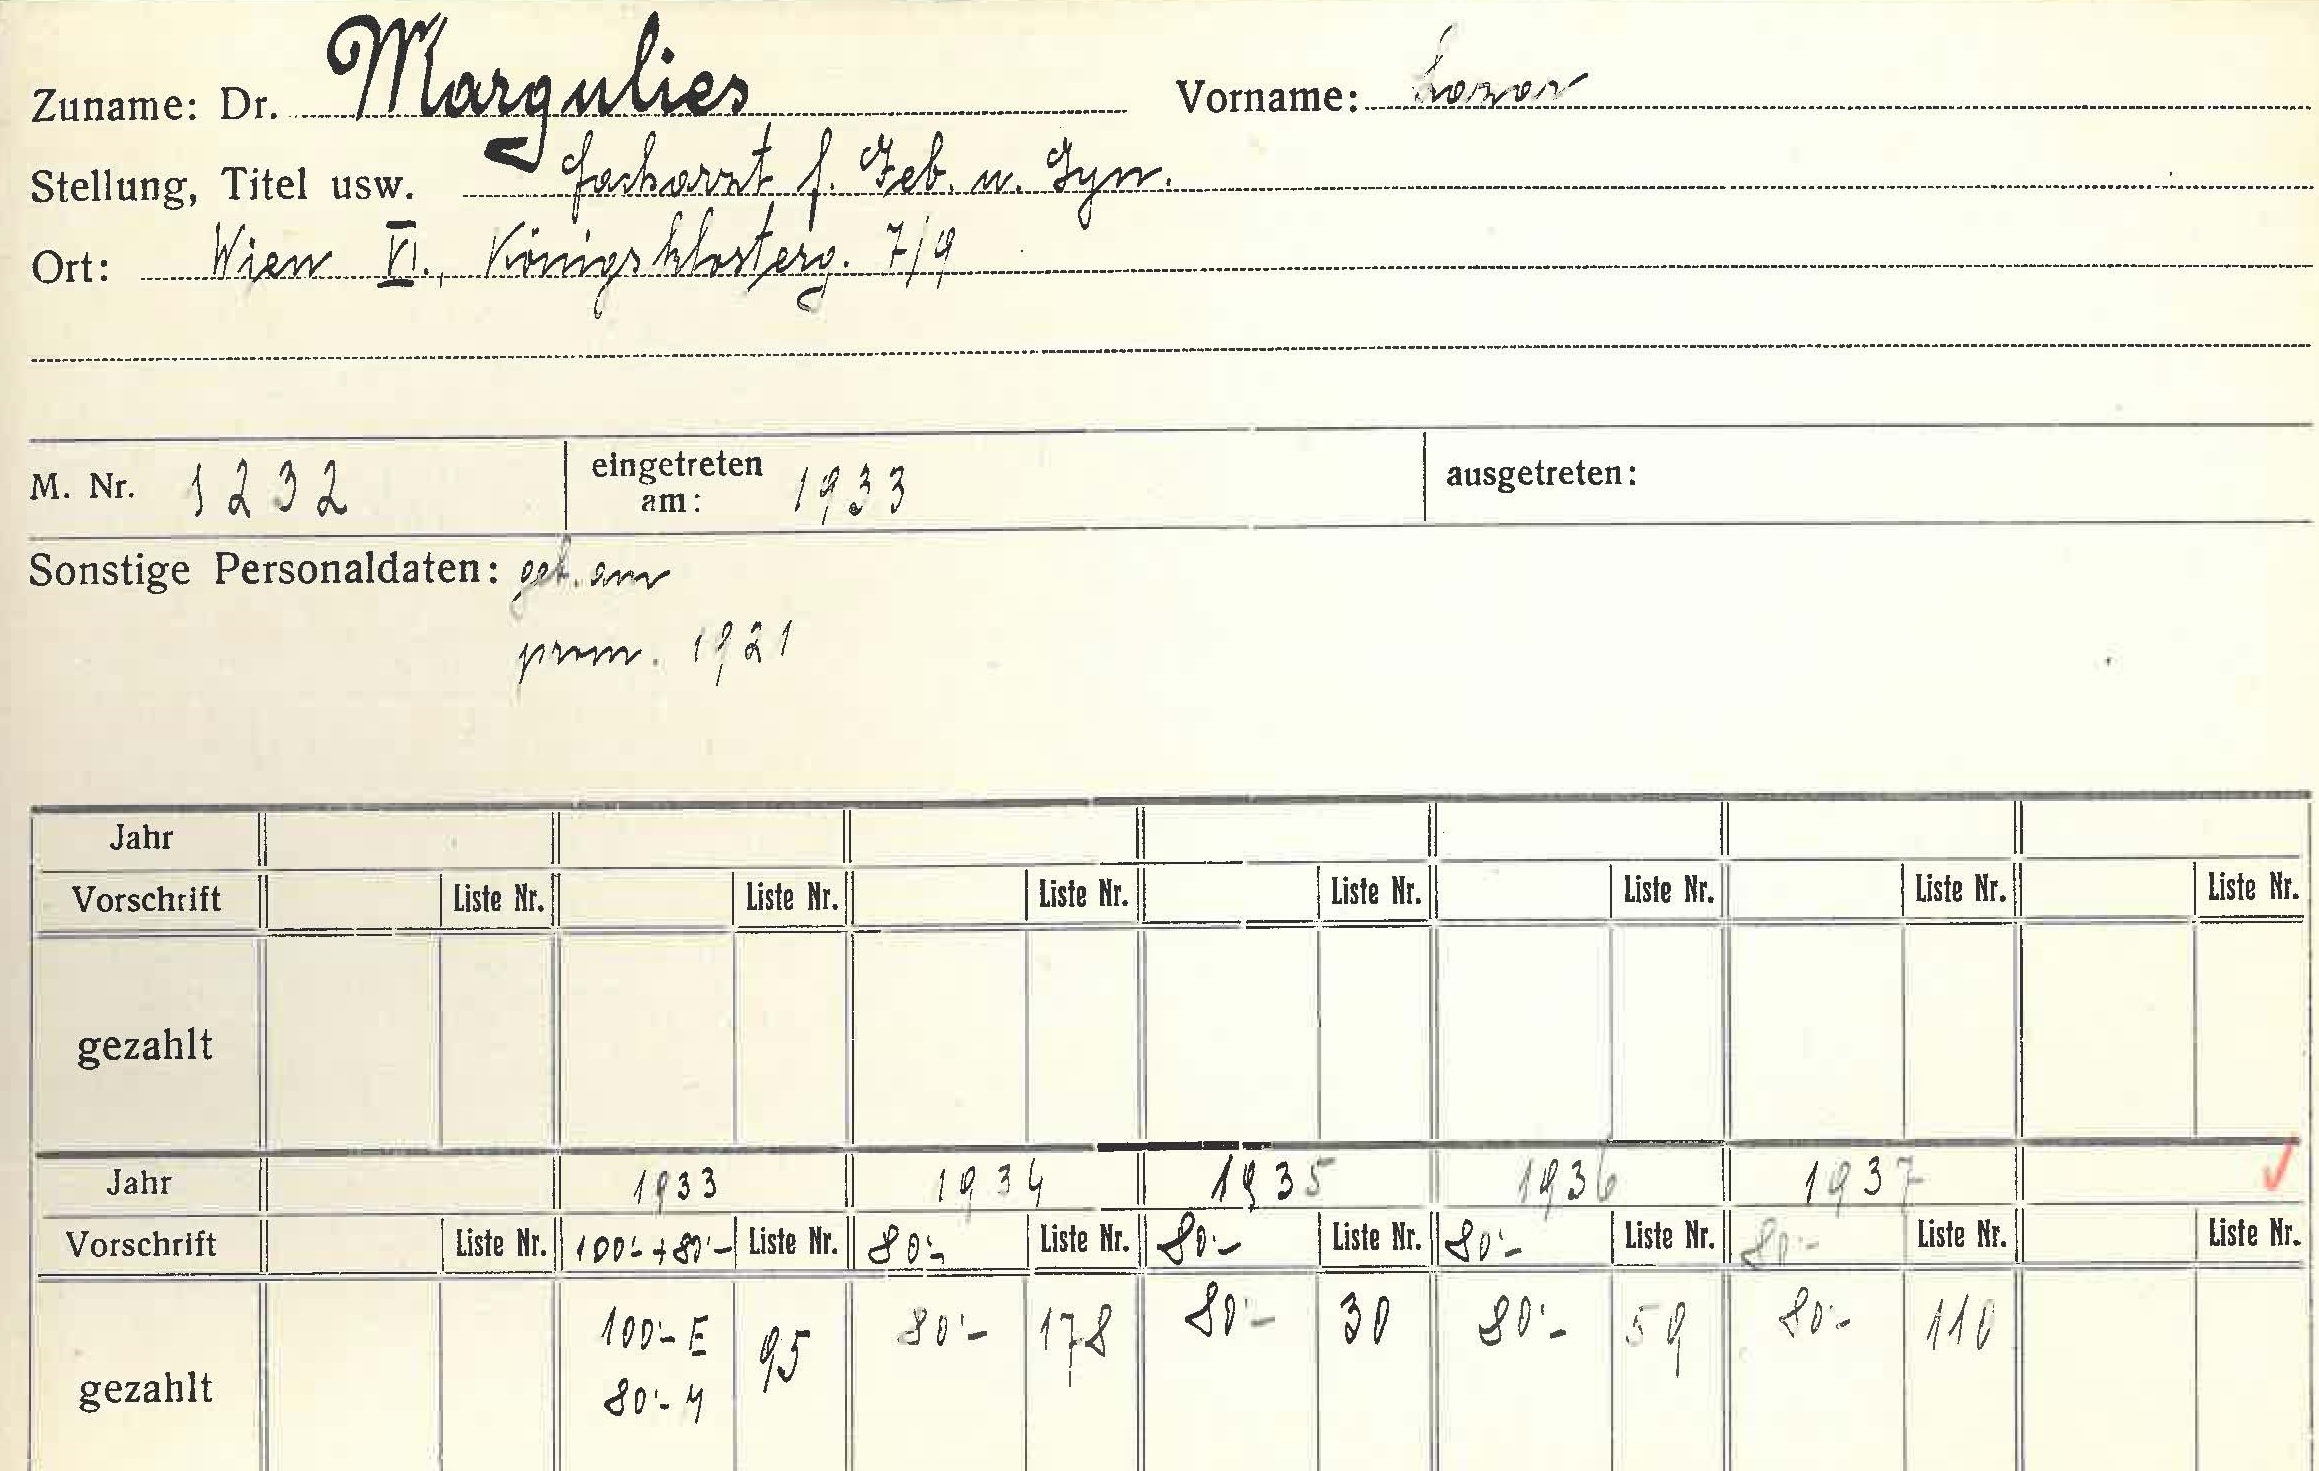 Zuname: Dr. Margulies Vorname: Lazar
Stellung, Titel usw. Facharzt f. Geb. u. Gyn.
Ort: Wien VI., Königsklosterg. 7/9
M. Nr. 1232 eingetreten am: 1933 ausgetreten:
Sonstige Personaldaten: geb. am
prom. 1921
Jahr
Vorschrift Liste Nr. Liste Nr. Liste Nr. Liste Nr. Liste Nr. Liste Nr. Liste Nr.
gezahlt
Jahr 1933 1934 1935 1936 1937
Vorschrift Liste Nr. 100'- + 80'- Liste Nr. 80'- Liste Nr. 80'- Liste Nr. 80'- Liste Nr. 80'- Liste Nr. Liste Nr.
gezahlt 100'- E 95 80'- 178 80'- 30 80'- 59 80'- 110
80'- M